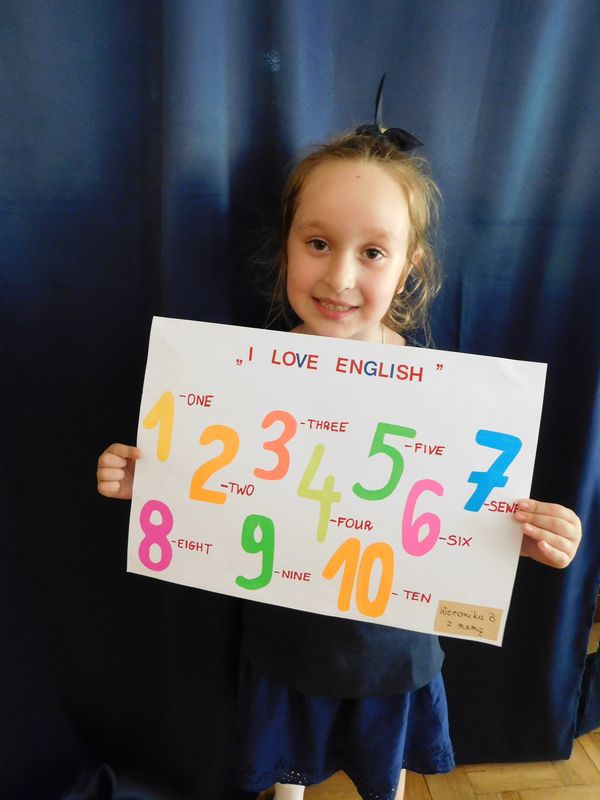 „I LOVE ENGLISH ”
1 -ONE
2 -TWO
3 -THREE
4 -FOUR
5 -FIVE
6 -SIX
7
8 -EIGHT
9 -NINE
10 - TEN
Weronika B
z mamą